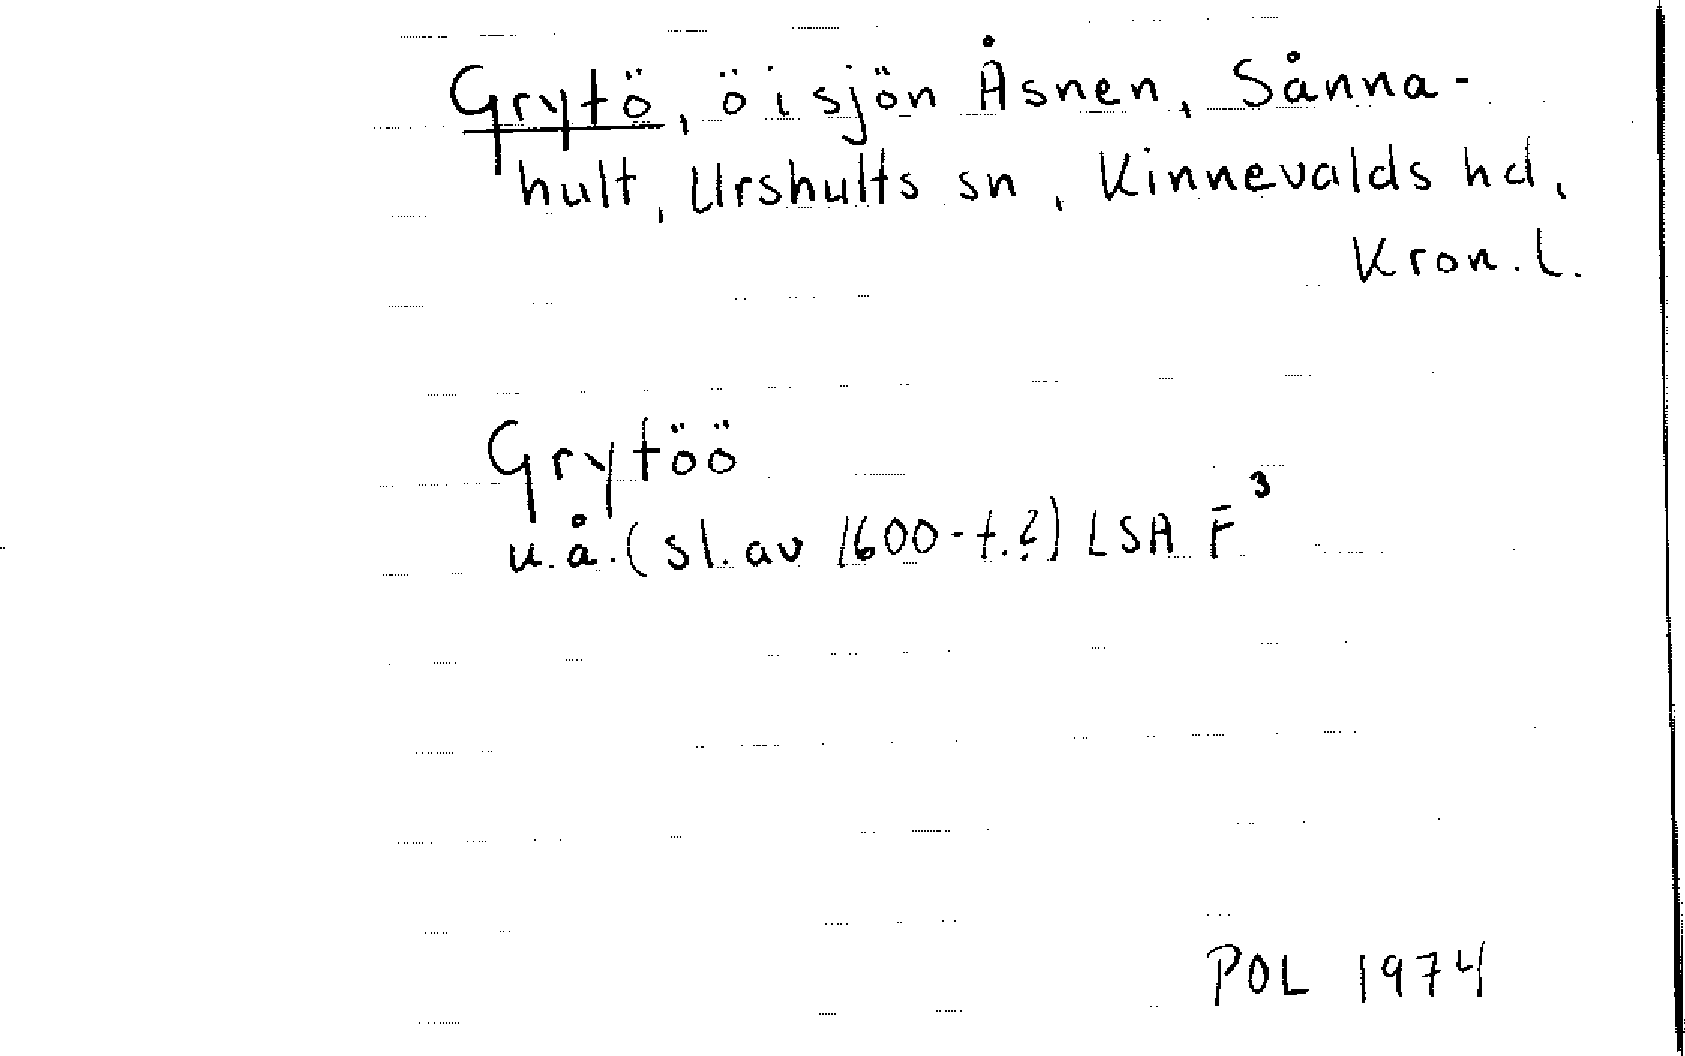 Grytö, ö i sjön Åsnen, Sånna-
hult, Urshults sn, Kinnevalds hd,
Kron. l.
Grytöö
u.å. (sl. av 1600-t.?) LSA F³
POL 1974